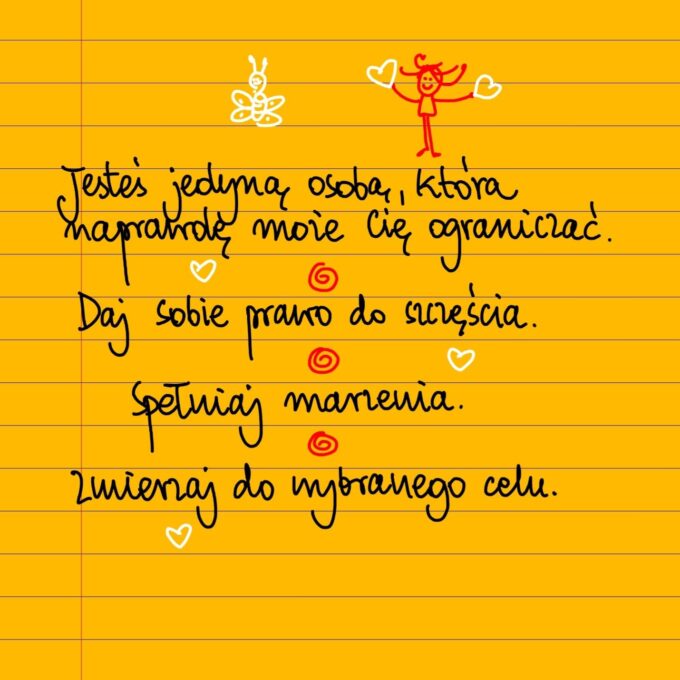 Jesteś jedyną osobą, która
naprawdę może Cię ograniczać.
Daj sobie prawo do szczęścia.
Spełniaj marzenia.
Zmierzaj do wybranego celu.